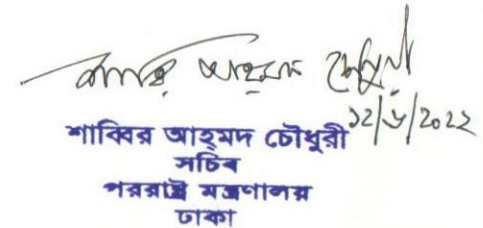 শাব্বির আহমদ চৌধুরী
১২/৬/২০২২
শাব্বির আহ্‌মদ চৌধুরী
সচিব
পররাষ্ট্র মন্ত্রণালয়
ঢাকা